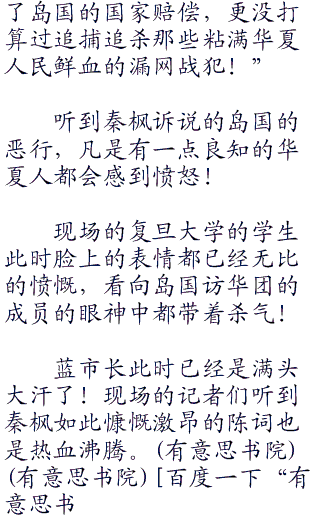 了岛国的国家赔偿，更没打
算过追捕追杀那些粘满华夏
人民鲜血的漏网战犯！”
听到秦枫诉说的岛国的
恶行，凡是有一点良知的华
夏人都会感到愤怒！
现场的复旦大学的学生
此时脸上的表情都已经无比
的愤慨，看向岛国访华团的
成员的眼神中都带着杀气！
蓝市长此时已经是满头
大汗了！现场的记者们听到
秦枫如此慷慨激昂的陈词也
是热血沸腾。(有意思书院)
(有意思书院)[百度一下“有
意思书